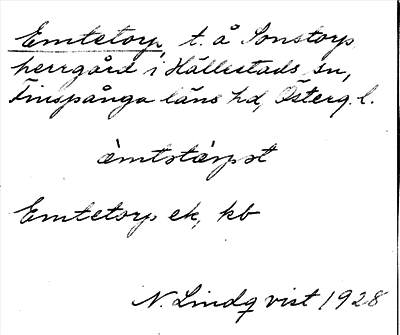 Emtetorp, t. å Sonstorps
herrgård i Hällestads sn,
Finspånga läns hd, Österg. l.
æ̀mtstærpət
Emtetorp ek, kb
N. Lindqvist 1928